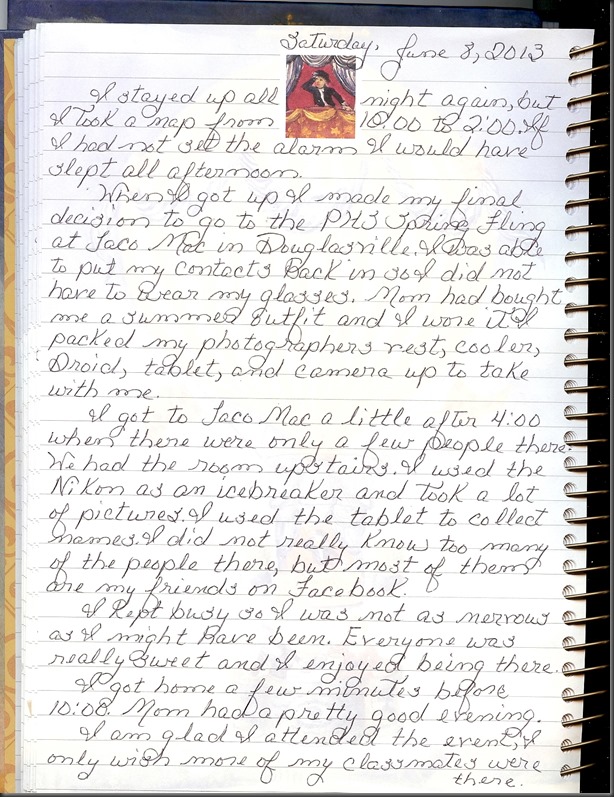 Saturday, June 8, 2013
I stayed up all night again, but
I took a nap from 10:00 to 2:00. If
I had not set the alarm I would have
slept all afternoon.
When I got up I made my final
decision to go to the PHS Spring Fling
at Taco Mac in Douglasville. I was able
to put my contacts back in so I did not
have to wear my glasses. Mom had bought
me a summer outfit and I wore it. I
packed my photographers vest, cooler,
Droid, tablet, and camera up to take
with me.
I got to Taco Mac a little after 4:00
when there were only a few people there.
We had the room upstairs. I used the
Nikon as an icebreaker and took a lot
of pictures. I used the tablet to collect
names. I did not really know too many
of the people there, but most of them
are my friends on Facebook.
I kept busy so I was not as nervous
as I might have been. Everyone was
really sweet and I enjoyed being there.
I got home a few minutes before
10:08. Mom had a pretty good evening.
I am glad I attended the event, I
only wish more of my classmates were
there.